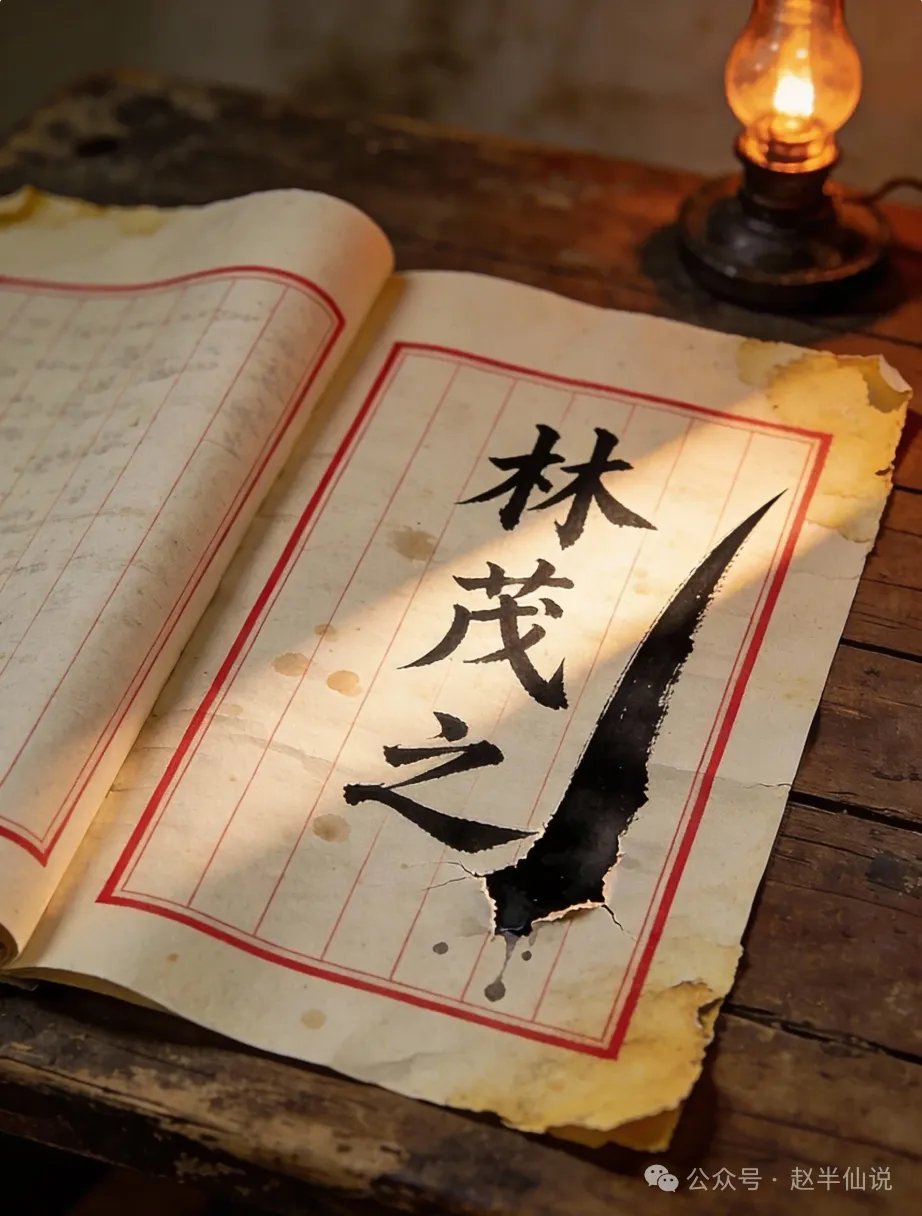 林茂之
公众号 · 赵半仙说